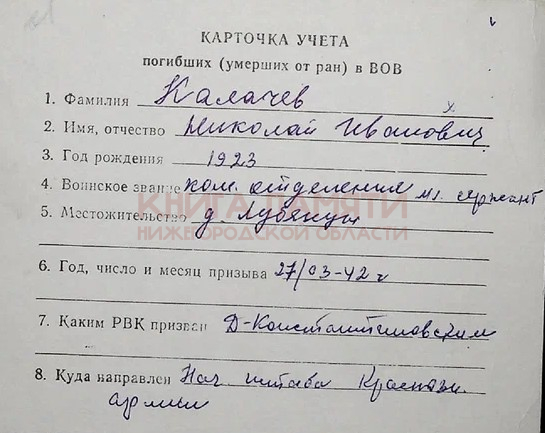 КАРТОЧКА УЧЕТА
погибших (умерших от ран) в ВОВ
1. Фамилия Калачев
2. Имя, отчество Николай Иванович
3. Год рождения 1923
4. Воинское звание ком. отделения мл. сержант
КНИГА ПАМЯТИ
5. Местожительство д.
НИЖЕГОРОДСКОЙ ОБЛАСТИ
6. Год, число и месяц призыва 27/03-42 г
7. Каким РВК призван Д-Константиновским
8. Куда направлен Нач. штаба
армии